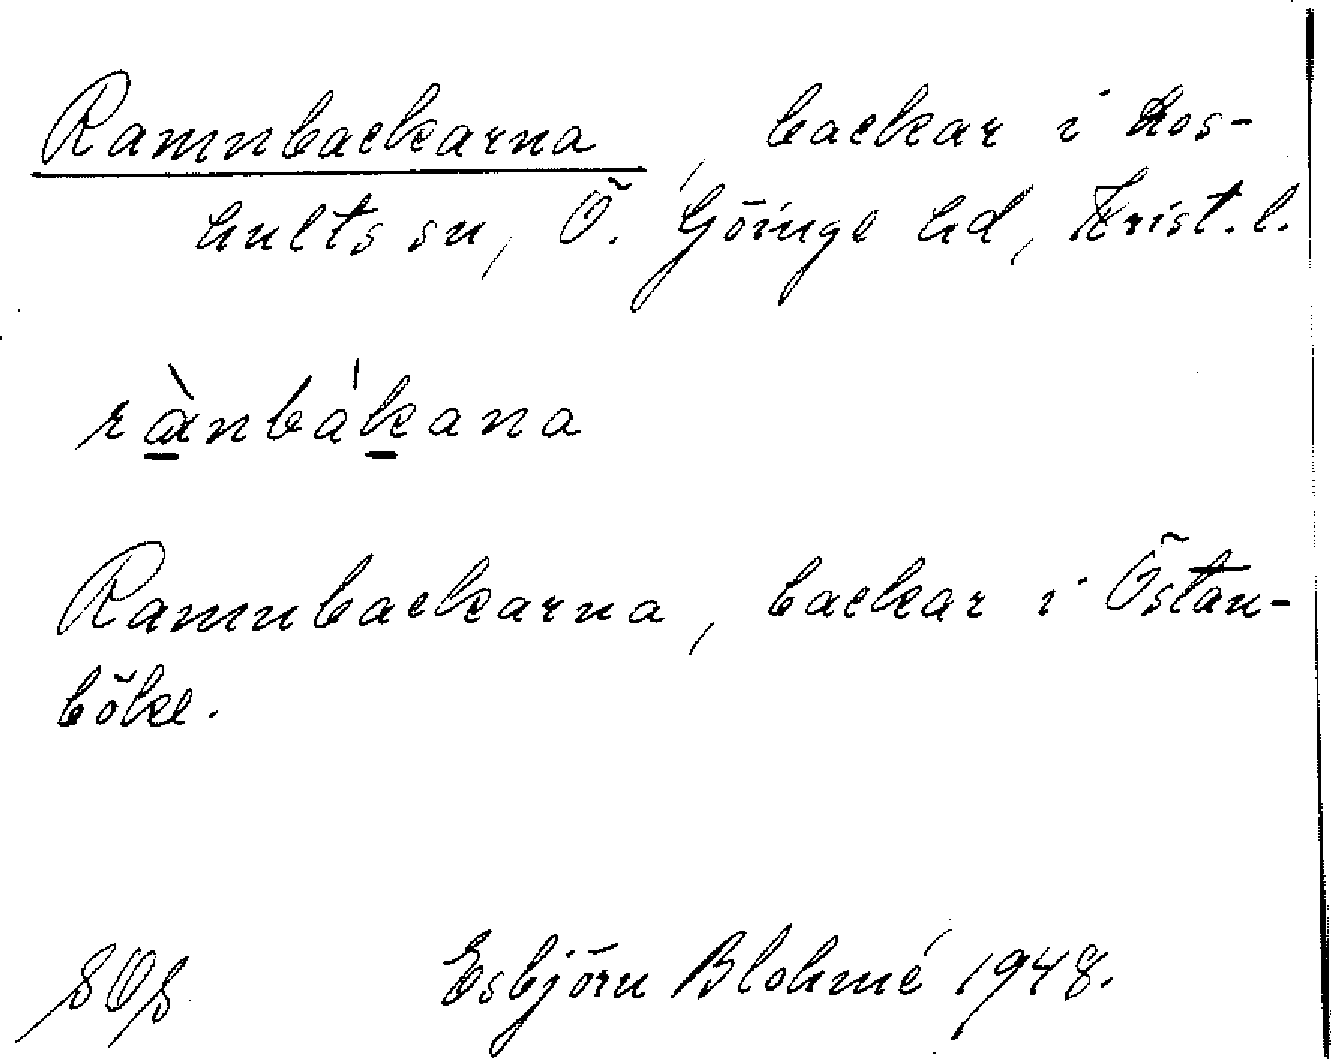 Ramnbackarna, backar i Los-
hults sn, Ö. Göinge hd, Krist. l.
rànbákana
Ramnbackarna, backar i Östan-
böke.
Esbjörn Blohmé 1948.